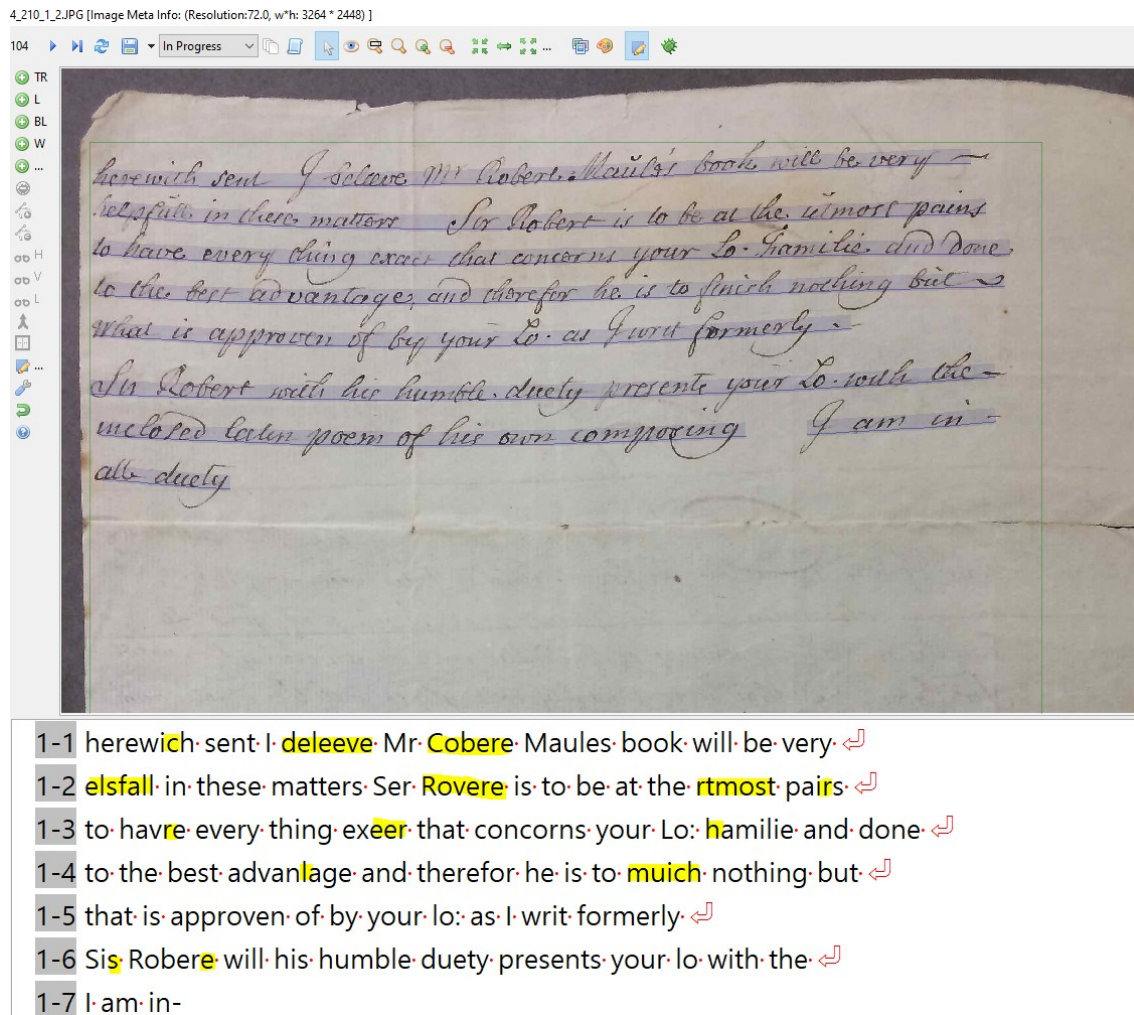 4_210_1_2.JPG [Image Meta Info: (Resolution:72.0, w*h: 3264 * 2448) ]
104 In Progress ...
TR
L
BL
W
...
H
V
L
...
herewith sent I beleeve Mr Robert Maule's book will be very
helpfull in these matters Sir Robert is to be at the utmost pains
to have every thing exact that concerns your Lo. ffamilie and done
to the best advantage, and therefor he is to finish nothing but
what is approven of by your Lo. as I writ formerly.
Sir Robert with his humble duety presents your Lo. with the
inclosed latin poem of his own composing I am in
all duety
1-1 herewich sent I deleeve Mr Cobere Maules book will be very
1-2 elsfall in these matters Ser Rovere is to be at the rtmost pairs
1-3 to havre every thing exeer that concorns your Lo: hamilie and done
1-4 to the best advanlage and therefor he is to muich nothing but
1-5 that is approven of by your lo: as I writ formerly
1-6 Sis Robere will his humble duety presents your lo with the
1-7 I am in-